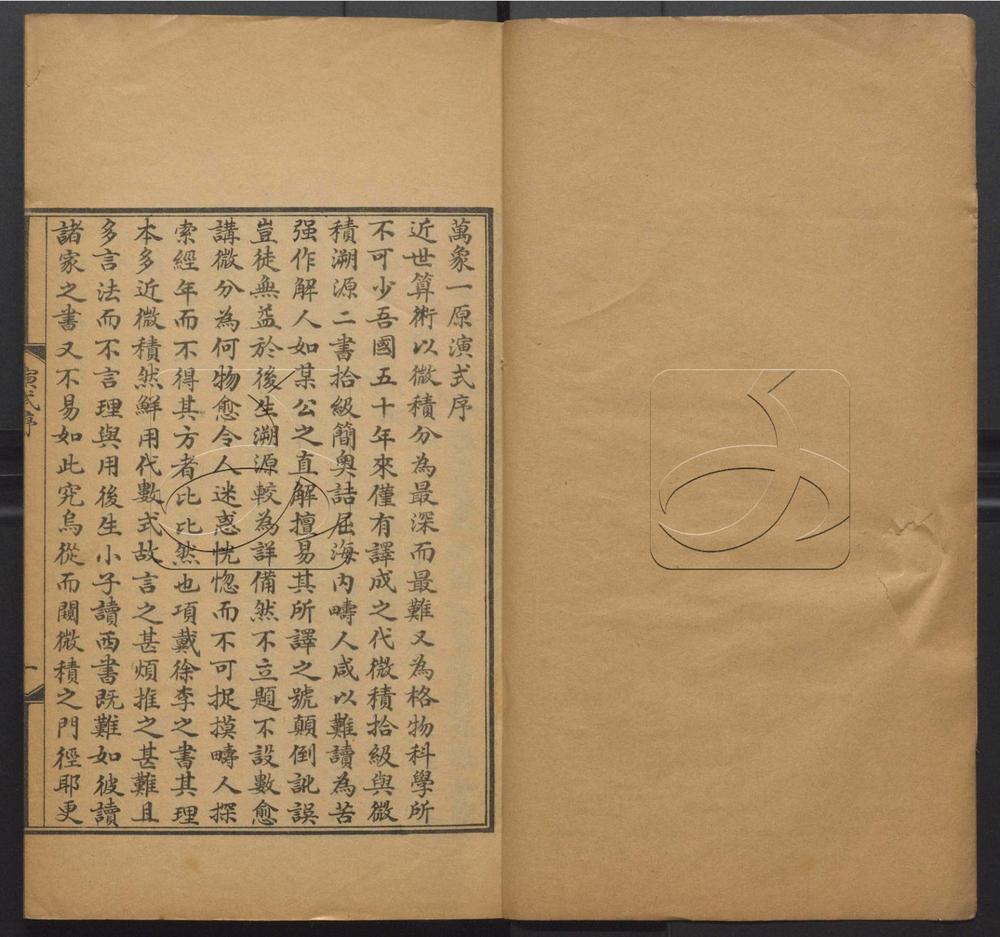 萬象一原演式序
近世算術以微積分為最深而最難又為格物科學所
不可少吾國五十年來僅有譯成之代微積拾級與微
積溯源二書拾級簡奧詰屈海内疇人咸以難讀為苦
强作解人如某公之直解擅易其所譯之號顛倒訛誤
豈徒無益於後生溯源較為詳備然不立題不設數愈
講微分為何物愈令人迷惑恍惚而不可捉摸疇人探
索經年而不得其方者比比然也項戴徐李之書其理
本多近微積然鮮用代數式故言之甚煩推之甚難且
多言法而不言理與用後生小子讀西書既難如彼讀
諸家之書又不易如此究烏從而闚微積之門徑耶更
演式序
一